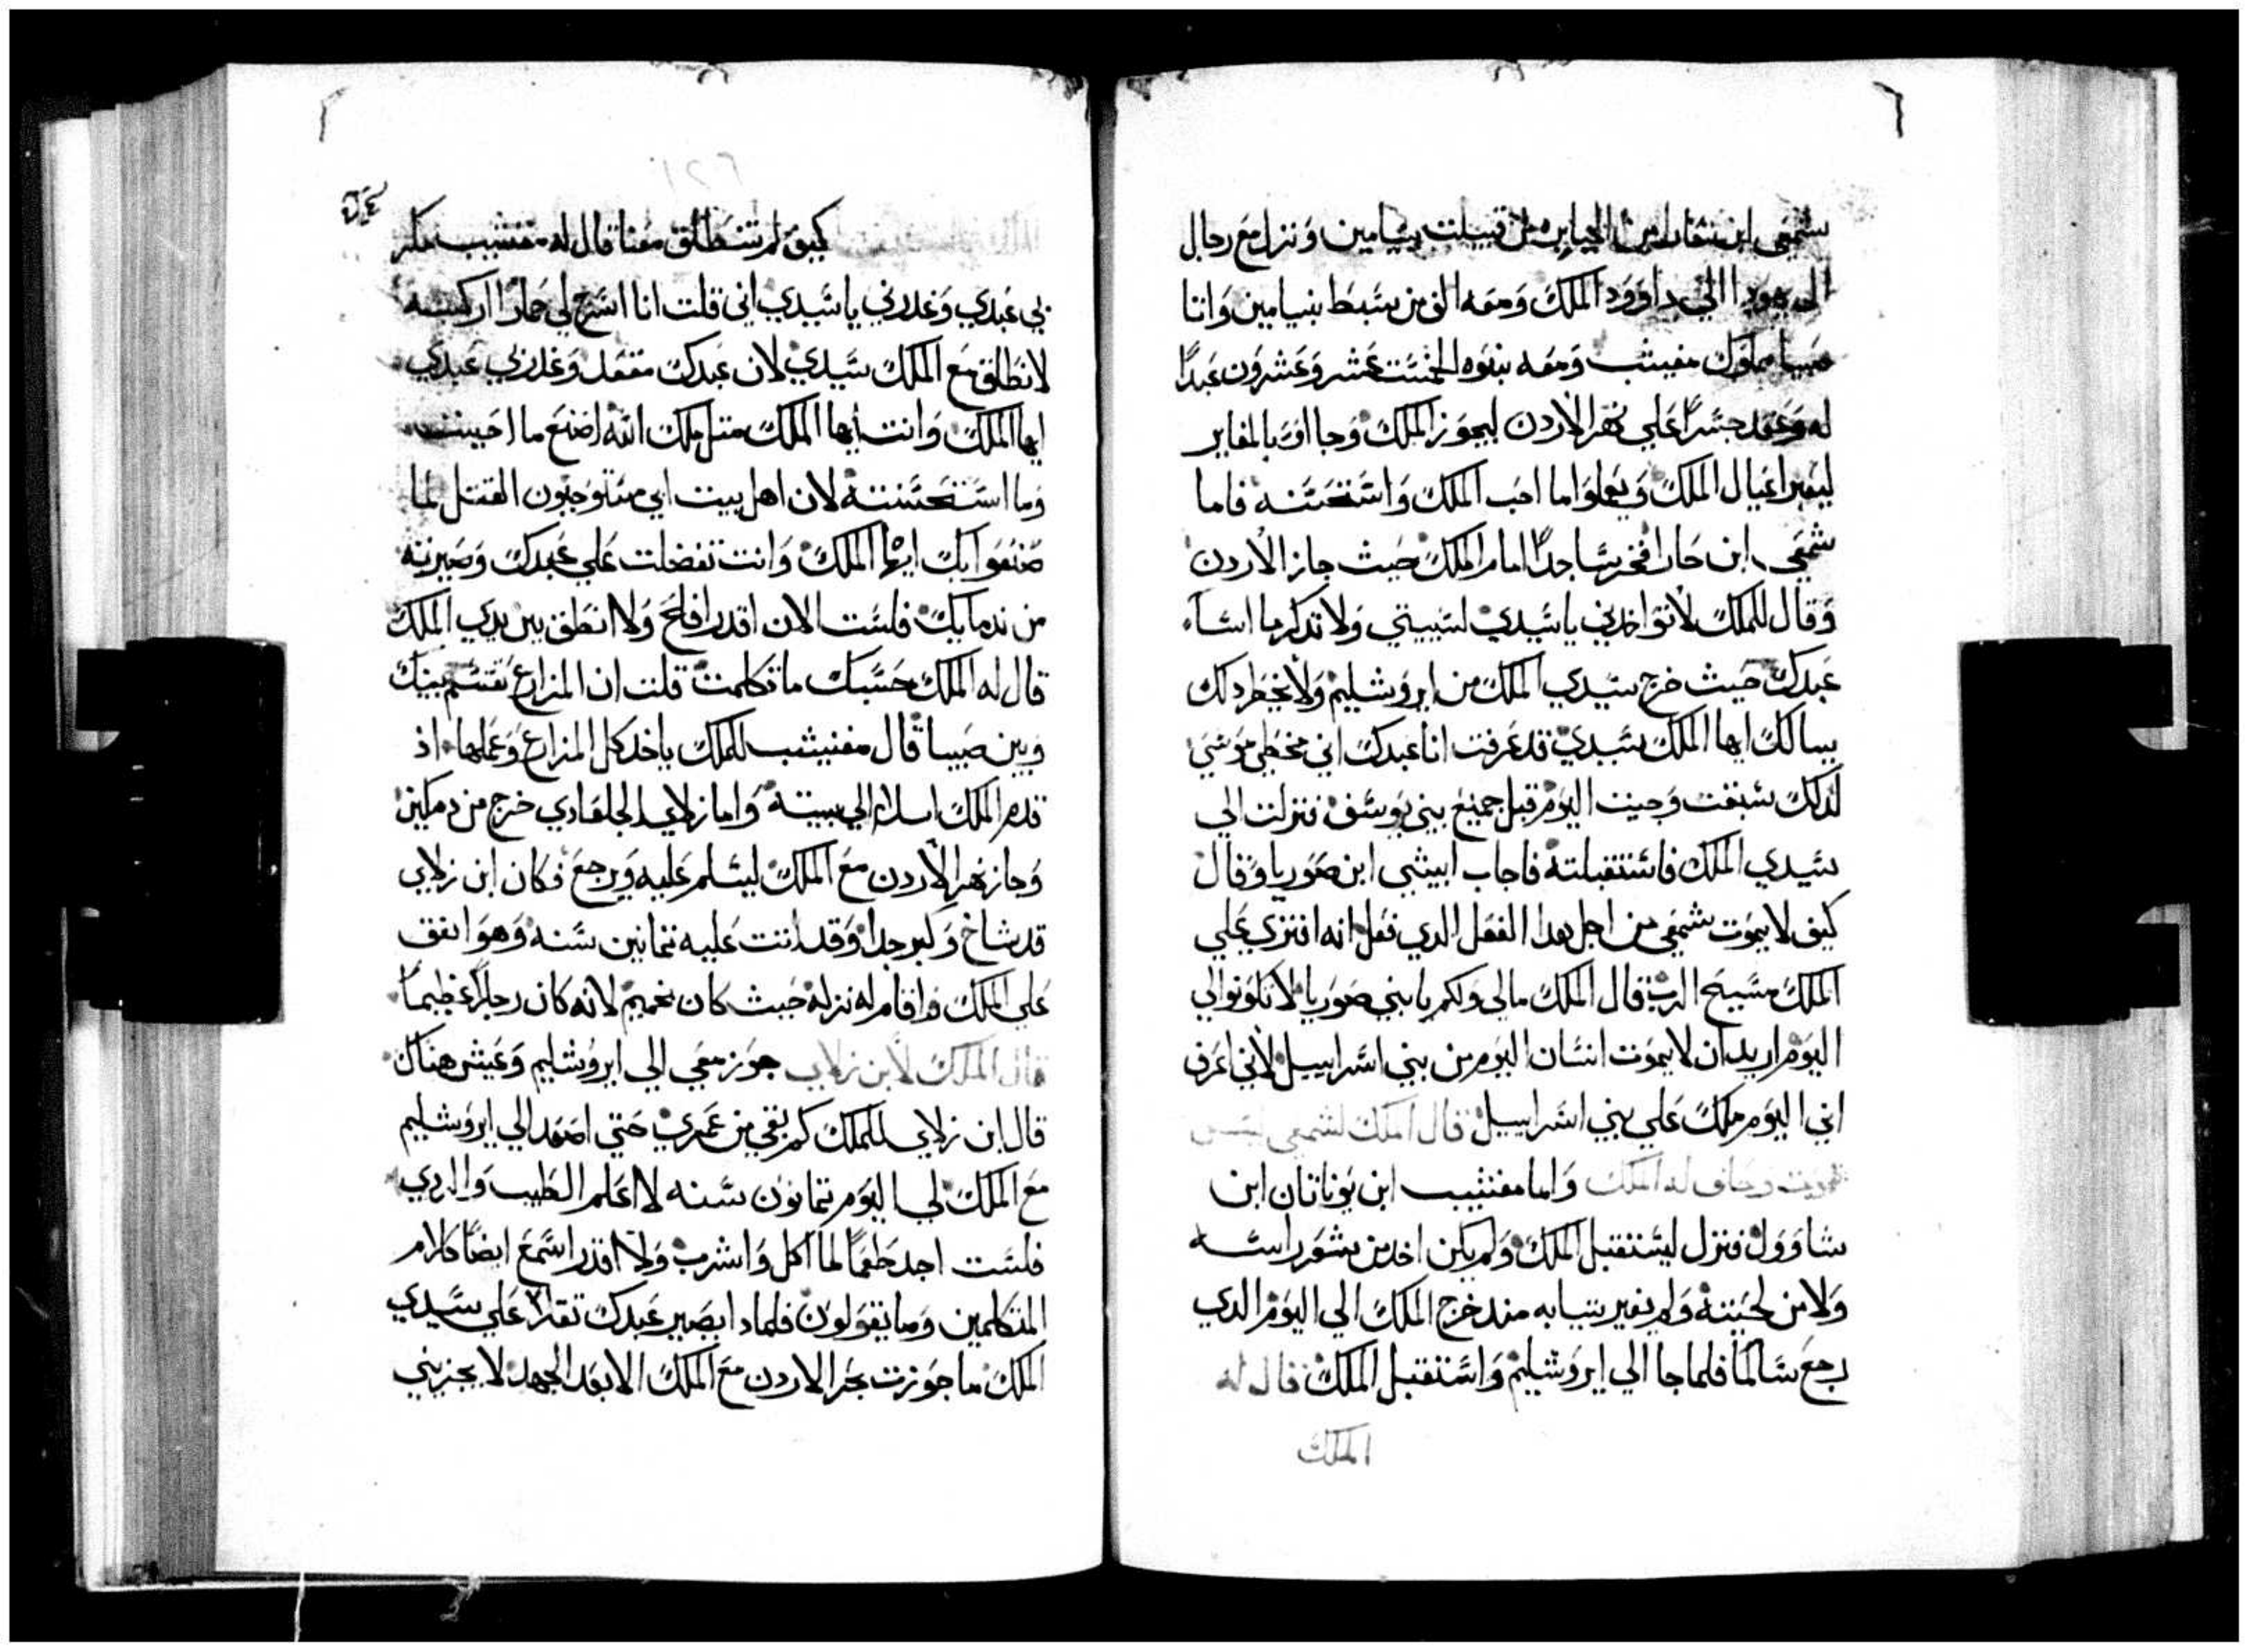 شمعي ابن من قبيلت بنيامين ونزل مع رجال
ال يهودا الي داوود الملك ومعه الف من سبط بنيامين واتا
صيبا مملوك مفيبثب ومعه بنوه الخمست عشر وعشرون عبدًا
له وعقد جسرًا علي نهر الاردن ليجوز الملك وجااوا بالمعابر
ليعبر اعيال الملك ويعملوا ما احب الملك واستحسنه فاما
شمعي ابن جارا فخر ساجدًا امام الملك حيث جاز الاردن
وقال للملك لا تواخدني ياسيدي لسبيتي ولا تدكر ما اسآء
عبدك حيث خرج سيدي الملك من ايروشليم ولا يخطر دلك
ببالك ايها الملك سيدي قد عرفت انا عبدك اني مخطي مو سي
لدلك سبقت وجيت اليوم قبل جميع بيني يوسف فنزلت الي
سيدي الملك فاستقبلته فاجاب ابيشي ابن صوريا وقال
كيف لا يموت شمعي من اجل هدا الفعل الدي فعل انه افتري علي
الملك مسيح الرب قال الملك مالي ولكم يا بني صوريا لا تكونوا لي
اليوم اريد ان لا يموت انسان اليوم من بني اسراييل لاني اعرف
اني اليوم ملك علي بني اسراييل قال الملك لشمعي ليس
تموت وحلف له الملك واما مفيثيب ابن يوناتان ابن
شاوول فنزل ليستقبل الملك ولم يكن اخد من شعر راسه
ولا من لحيته ولم يغير تيابه مند خرج الملك الي اليوم الدي
رجع سالمًا فلما جا الي ايروشليم واستقبل الملك قال له
الملك
كيف لم تنطلق معنا قال له مفثيب مكر
بي عبدي وغدرني ياسيدي اني قلت انا اسرج لي حمارًا اركبه
لانطلق مع الملك سيدي لان عبدك مقعد وغدر بي عبدي
ايها الملك وانت ايها الملك متل ملك الله اصنع ما احببت
وما استحسنته لان اهل بيت ابي مستوجبون القتل لما
صنعوا بك ايها الملك وانت تفضلت علي عبدك وصيرته
من ندمايك فلست الان اقدر افلح ولا انطق بين يدي الملك
قال له الملك حسبك ما تكلمت قلت ان المزارع تقسم بينك
وبين صيبا قال مفيثب للملك ياخد كل المزارع وعملها اذ
قدم الملك اسلام الي بيته واما زلاي الجلعادي خرج من دملين
وجاز نهر الاردن مع الملك ليسلم عليه ويرجع فكان ابن زلاي
قد شاخ وكبر جدا وقد اتت عليه تمانين سنه وهو انفق
علي الملك واقام له نزله حيث كان بمحنيم لانه كان رجلًا عظيمًا
قال الملك لابن زلاي جوز معي الي ايروشليم وعيش هناك
قال ابن زلاي للملك كم بقي من عمري حتي اصعد الي ايروشليم
مع الملك لي اليوم تمانون سنه لا اعلم الطيب والردي
فلست اجد طعمًا لما اكل واشرب ولا اقدر اسمع ايضًا كلام
المتكلمين وما يقولون فلمادا يصير عبدك تقلا علي سيدي
الملك ما جوزت بحر الاردن مع الملك الا بعد الجهد لا يجزيني